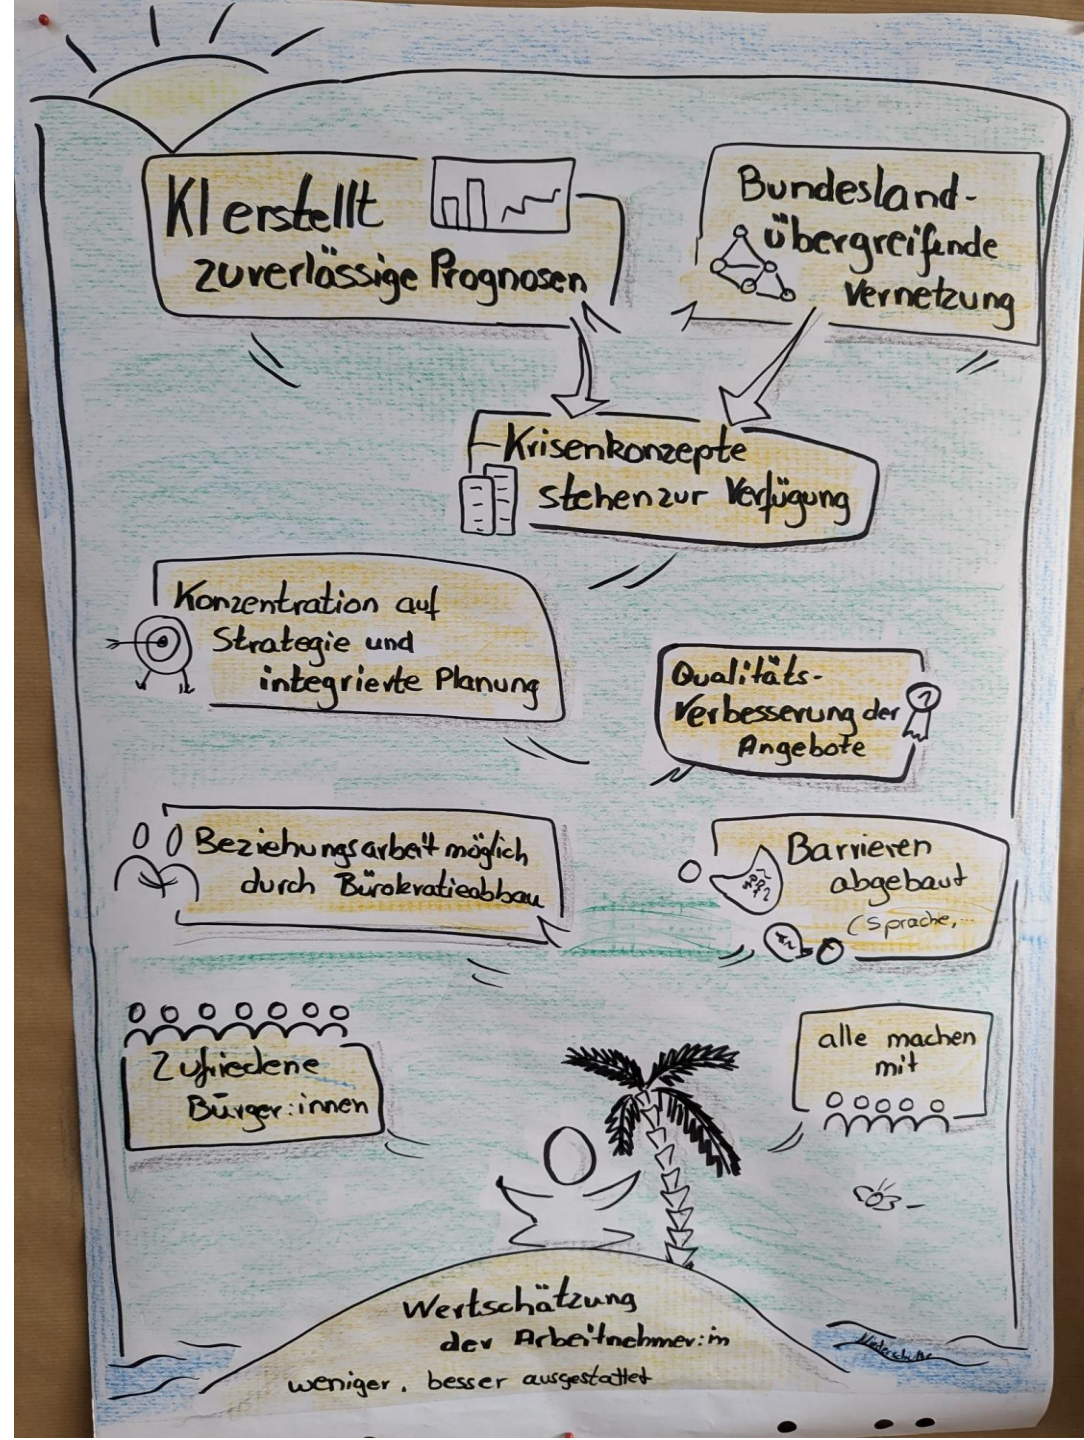 KI erstellt
zuverlässige Prognosen
Bundesland-
übergreifende
Vernetzung
Krisenkonzepte
stehen zur Verfügung
Konzentration auf
Strategie und
integrierte Planung
Qualitäts-
Verbesserung der
Angebote
Beziehungsarbeit möglich
durch Bürokratieabbau
Barrieren
abgebaut
(Sprache,...
Zufriedene
Bürger:innen
alle machen
mit
Wertschätzung
der Arbeitnehmer:in
weniger, besser ausgestattet